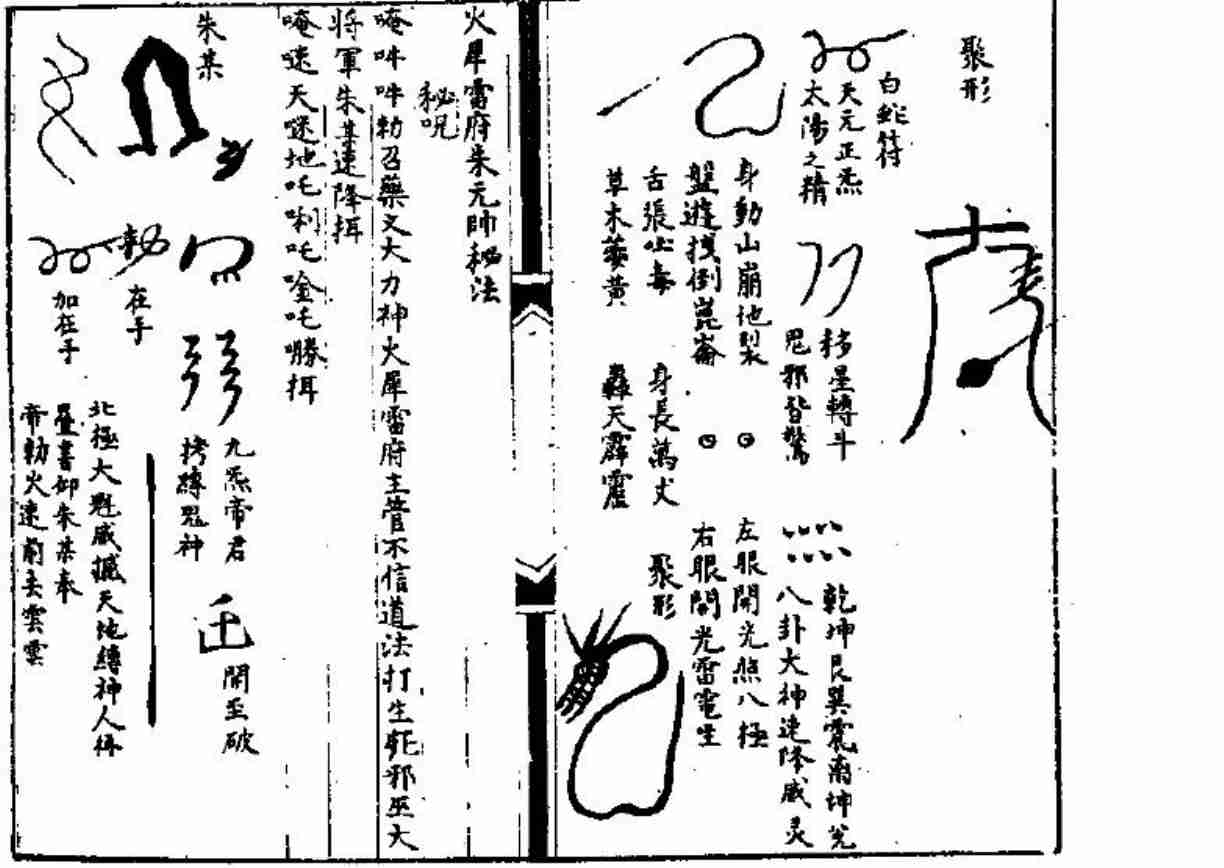 聚形
白蛇符
天元正炁
太陽之精
移星轉斗
鬼邪皆驚
乾坤艮巽震离坤兌
八卦大神速降威灵
身動山崩地裂
盤遊拽倒崑崙
左眼開光照八極
右眼開光雷電生
舌張吐毒
草木萎黃
身長萬丈
轟天霹靂
聚形
火犀雷府朱元帥秘法
秘咒
唵吽吽勅召藥叉大力神火犀雷府主管不信道法打生死邪巫大
將軍朱某速降揖
唵㖔天㖔地吒唎吒唫吒嘮揖
朱某
九炁帝君
拷縛鬼神
開玉破
勅
在手
加在手
北極大魁威撼天地縛神人
疊書卸朱某奉
帝勅火速前去雲雲